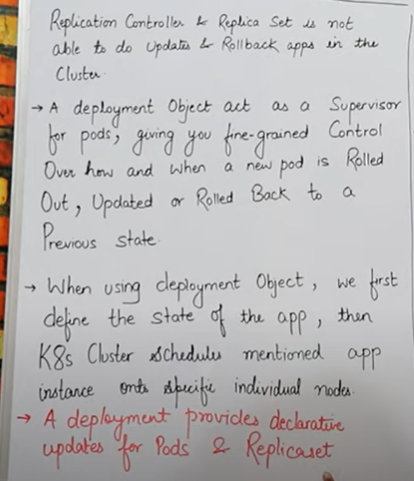 Replication Controller & Replica Set is not
able to do Updates & Rollback apps in the
Cluster.
→ A deployment Object act as a Supervisor
for pods, giving you fine-grained Control
Over how and when a new pod is Rolled
Out, Updated or Rolled Back to a
Previous state.
→ When using deployment Object, we first
define the state of the app, then
K8s Cluster Schedules mentioned app
instance onto specific individual nodes.
→ A deployment provides declarative
updates for Pods & Replicaset